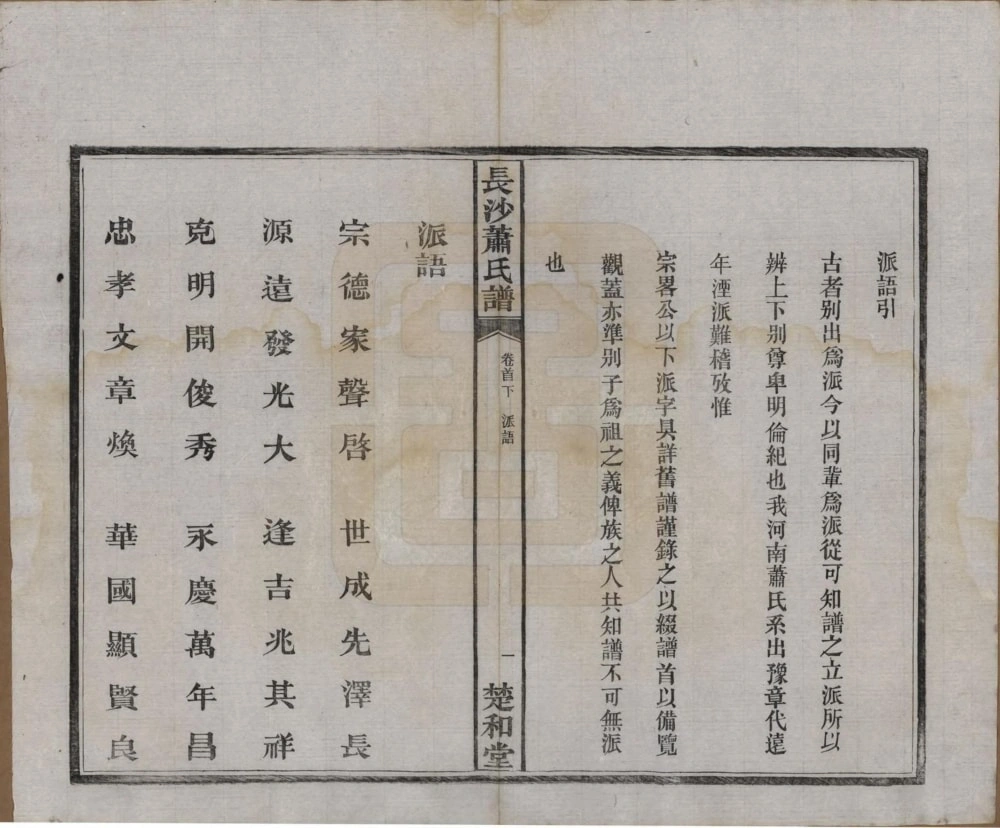 派語引
古者别出爲派今以同輩爲派從可知譜之立派所以
辨上下别尊卑明倫紀也我河南蕭氏系出豫章代遠
年湮派難稽攷惟
宗畧公以下派字具詳舊譜謹錄之以綴譜首以備覽
觀蓋亦準别子爲祖之義俾族之人共知譜不可無派
也
長沙蕭氏譜 卷首下 派語 一 楚和堂
派語
宗德家聲啓 世成先澤長
源遠發光大 逢吉兆其祥
克明開俊秀 永慶萬年昌
忠孝文章煥 華國顯賢良